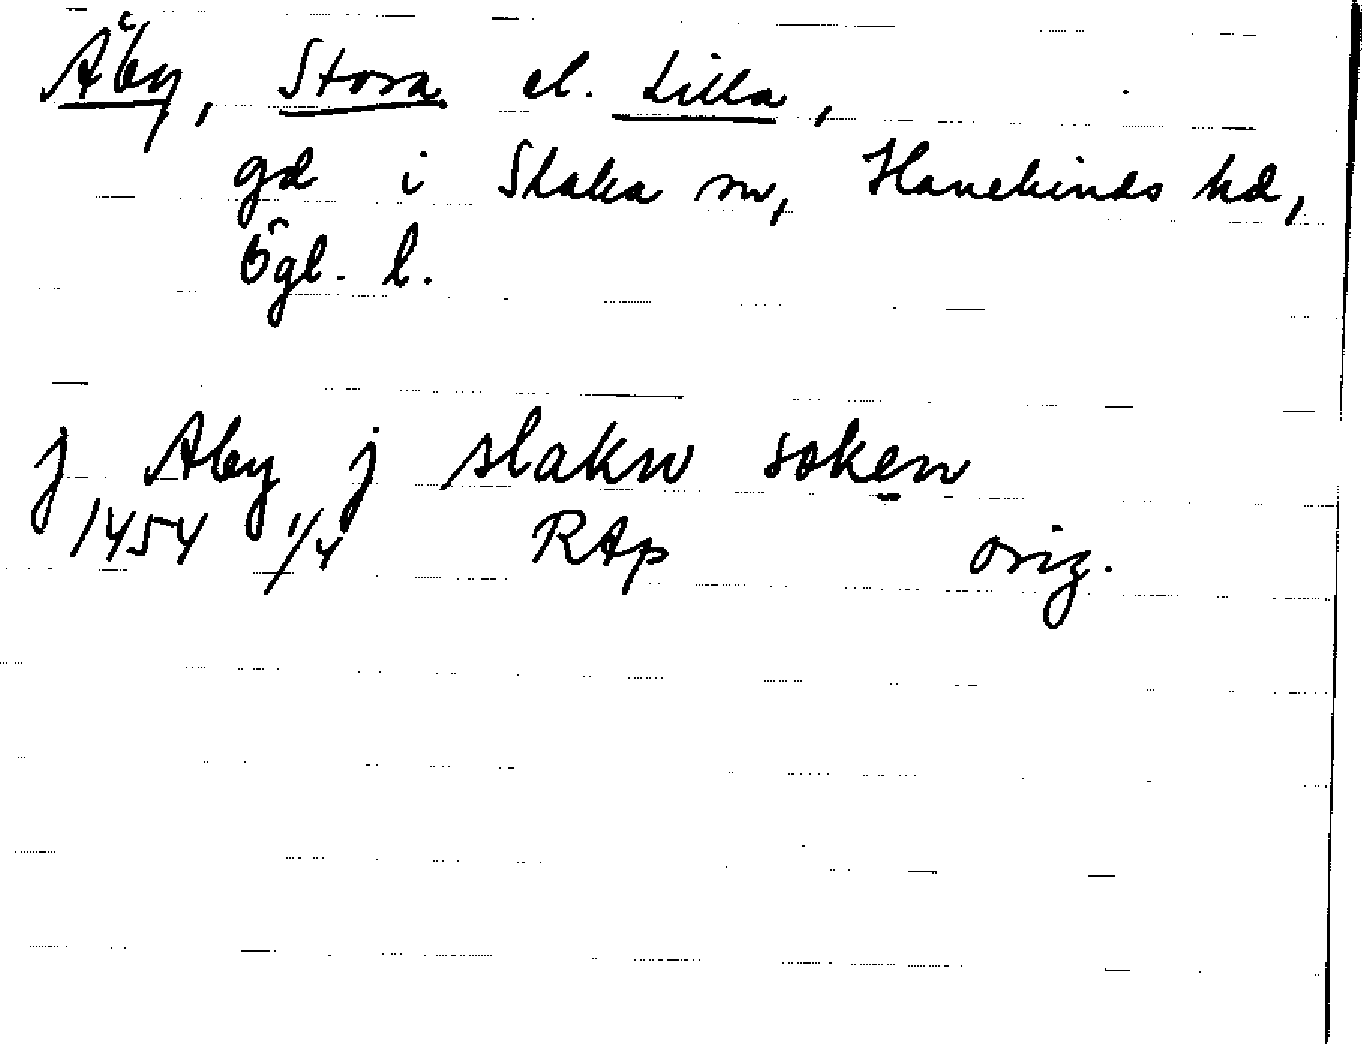 Åby, Stora el. Lilla,
gd i Slaka sn, Hanekinds hd,
Ögl. l.
j Aby j slakw soken
1454 1/4 RAp orig.